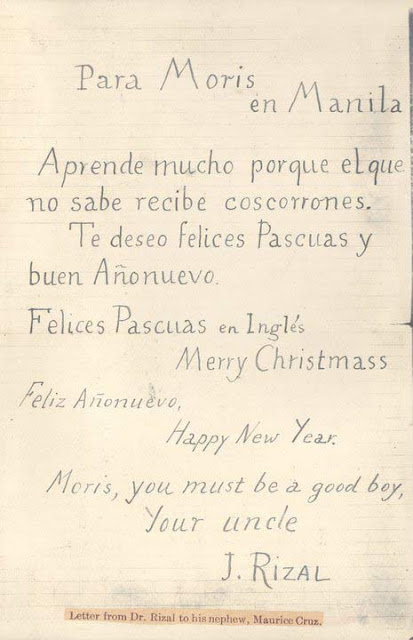 Para Moris
en Manila
Aprende mucho porque el que
no sabe recibe coscorrones.
Te deseo felices Pascuas y
buen Añonuevo.
Felices Pascuas en Inglés
Merry Christmass
Feliz Añonuevo,
Happy New Year.
Moris, you must be a good boy,
Your uncle
J. RIZAL
Letter from Dr. Rizal to his nephew, Maurice Cruz.